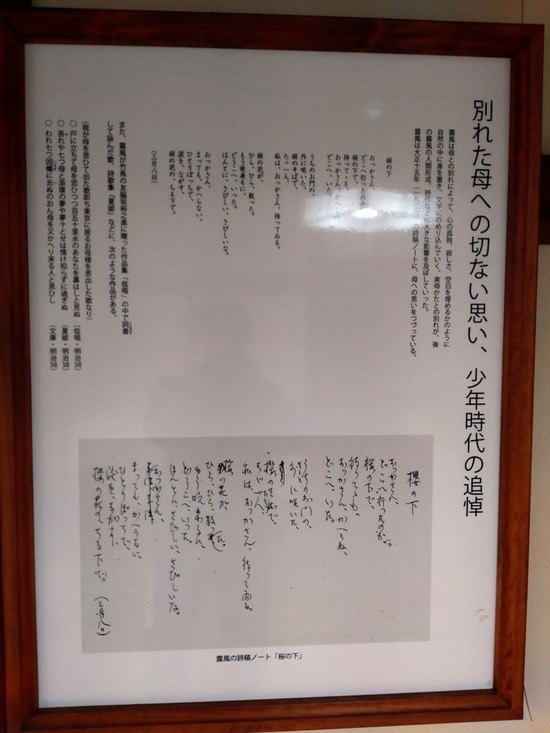 別れた母への切ない思い、少年時代の追悼
露風は母との別れによって、心の孤独、寂しさ、空白を埋めるかのように
自然の中に身を置き、文学にのめり込んでいく。実母かたとの別れが、後
の露風の人間形成、詩作などに大きな影響を及ぼしていった。
露風は大正十五年
の詩稿ノートに、母への思いをつづっている。
桜の下
おっかさん、
どこへ行ったのか。
桜の下で、
待っても、
おっかさん、かへらぬ、
どこへ、いた。
うちのお門の、
外に咲いた、
桜のそばで、
たゞ一人、
私は、おっかさん、待ってゐる。
桜の花が
ひら、ひら、散った。
もう晩来るに、
どうこへ、いった。
ほんとに、さびしい、さびしいな。
おっかさん、
まっても、かへらない、
ひとりぼっちで、
涙を、ながす、
桜の花の、ちる下で。
（三月八日）
また、露風が竹馬の友
に贈った作品集「低唱」の中で詞書
して詠んだ歌、詩歌集「夏姫」などに、次のような作品がある。
（我が母を思ひて出た歌即ち東京に居るお母様を思出した歌なり）
○ 戸に立ちて母を恋ひつつ百五十里水のあなたを墓はしと見ぬ　（低唱・明治38）
○ 吾れや七つ母と添寝の夢や夢十とせは情け知らずに過ぎぬ　（夏姫・明治38）
○ われ七つ因幡に去ぬのおん母を又かへり来る人と思ひし　（文庫・明治38）
櫻の下
おっかさん、
どこへ行ったのか。
桜の下で、
待っても、
おっかさん、かへらぬ、
どこへ、いた。
うちのお門の、
外に咲いた、
桜のそばで、
たゞ一人、
私は、おっかさん、待って居る。
桜の花が
ひら、ひら、散った。
どうこへ、いった。
ほんとに、さびしい、さびしいな。
おっかさん、
まっても、かへらない、
ひとりぼっちで、
涙を、ながす、
桜の花の、ちる下で。
（三月八日）
露風の詩稿ノート「桜の下」